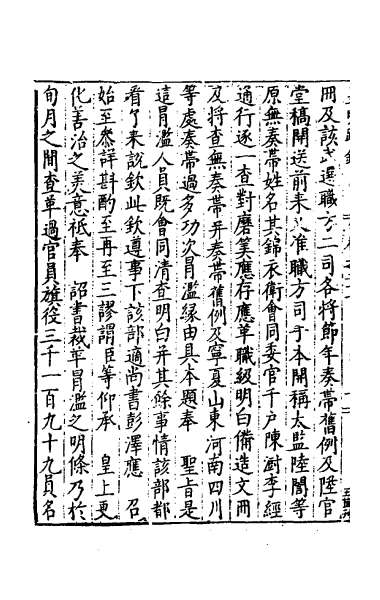 冊及該武選職方二司各將節年奏帶舊例及陞官
堂稿開送前來又准職方司手本開稱太監陸誾等
原無奏帶姓名其錦衣衛會同委官千戶陳澍李經
通行逐一查對磨筭應存應革職級明白俻造文冊
及將查無奏帶并奏帶舊例及寧夏山東河南四川
等處奏帶過多功次冐濫緣由具本題奉　聖旨是
這冐濫人員既會同清查明白并其餘事情該部都
看了來說欽此欽遵事下該部適尚書彭澤應　召
始至叅詳斟酌至再至三謬謂臣等仰承　皇上更
化善治之美意祇奉　詔書裁革冐濫之明條乃於
旬月之間查革過官員旗役三千一百九十九員名